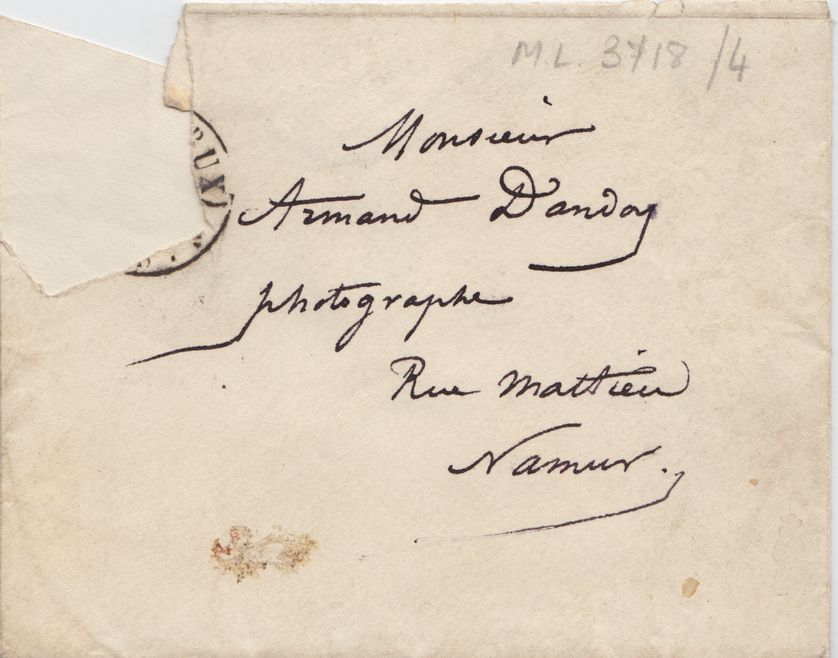 M.L. 3718/4
Monsieur
UX
Armand Dandoy
photographe
Rue Mathieu
Namur.